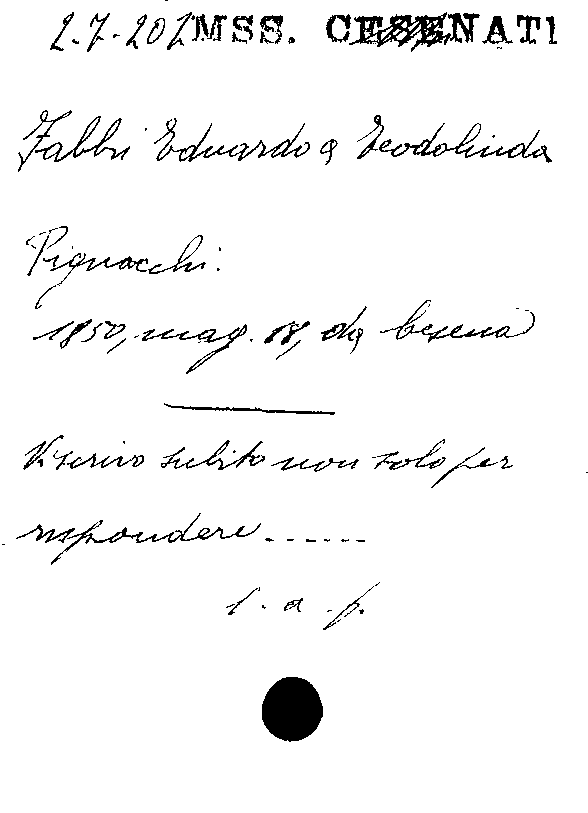 2.7.202 MSS. CESENATI
Fabbri Eduardo a Teodolinda
Pignocchi.
1850, mag. 18, da Cesena
Vi scrivo subito non solo per
rispondere ......
l. a. f.